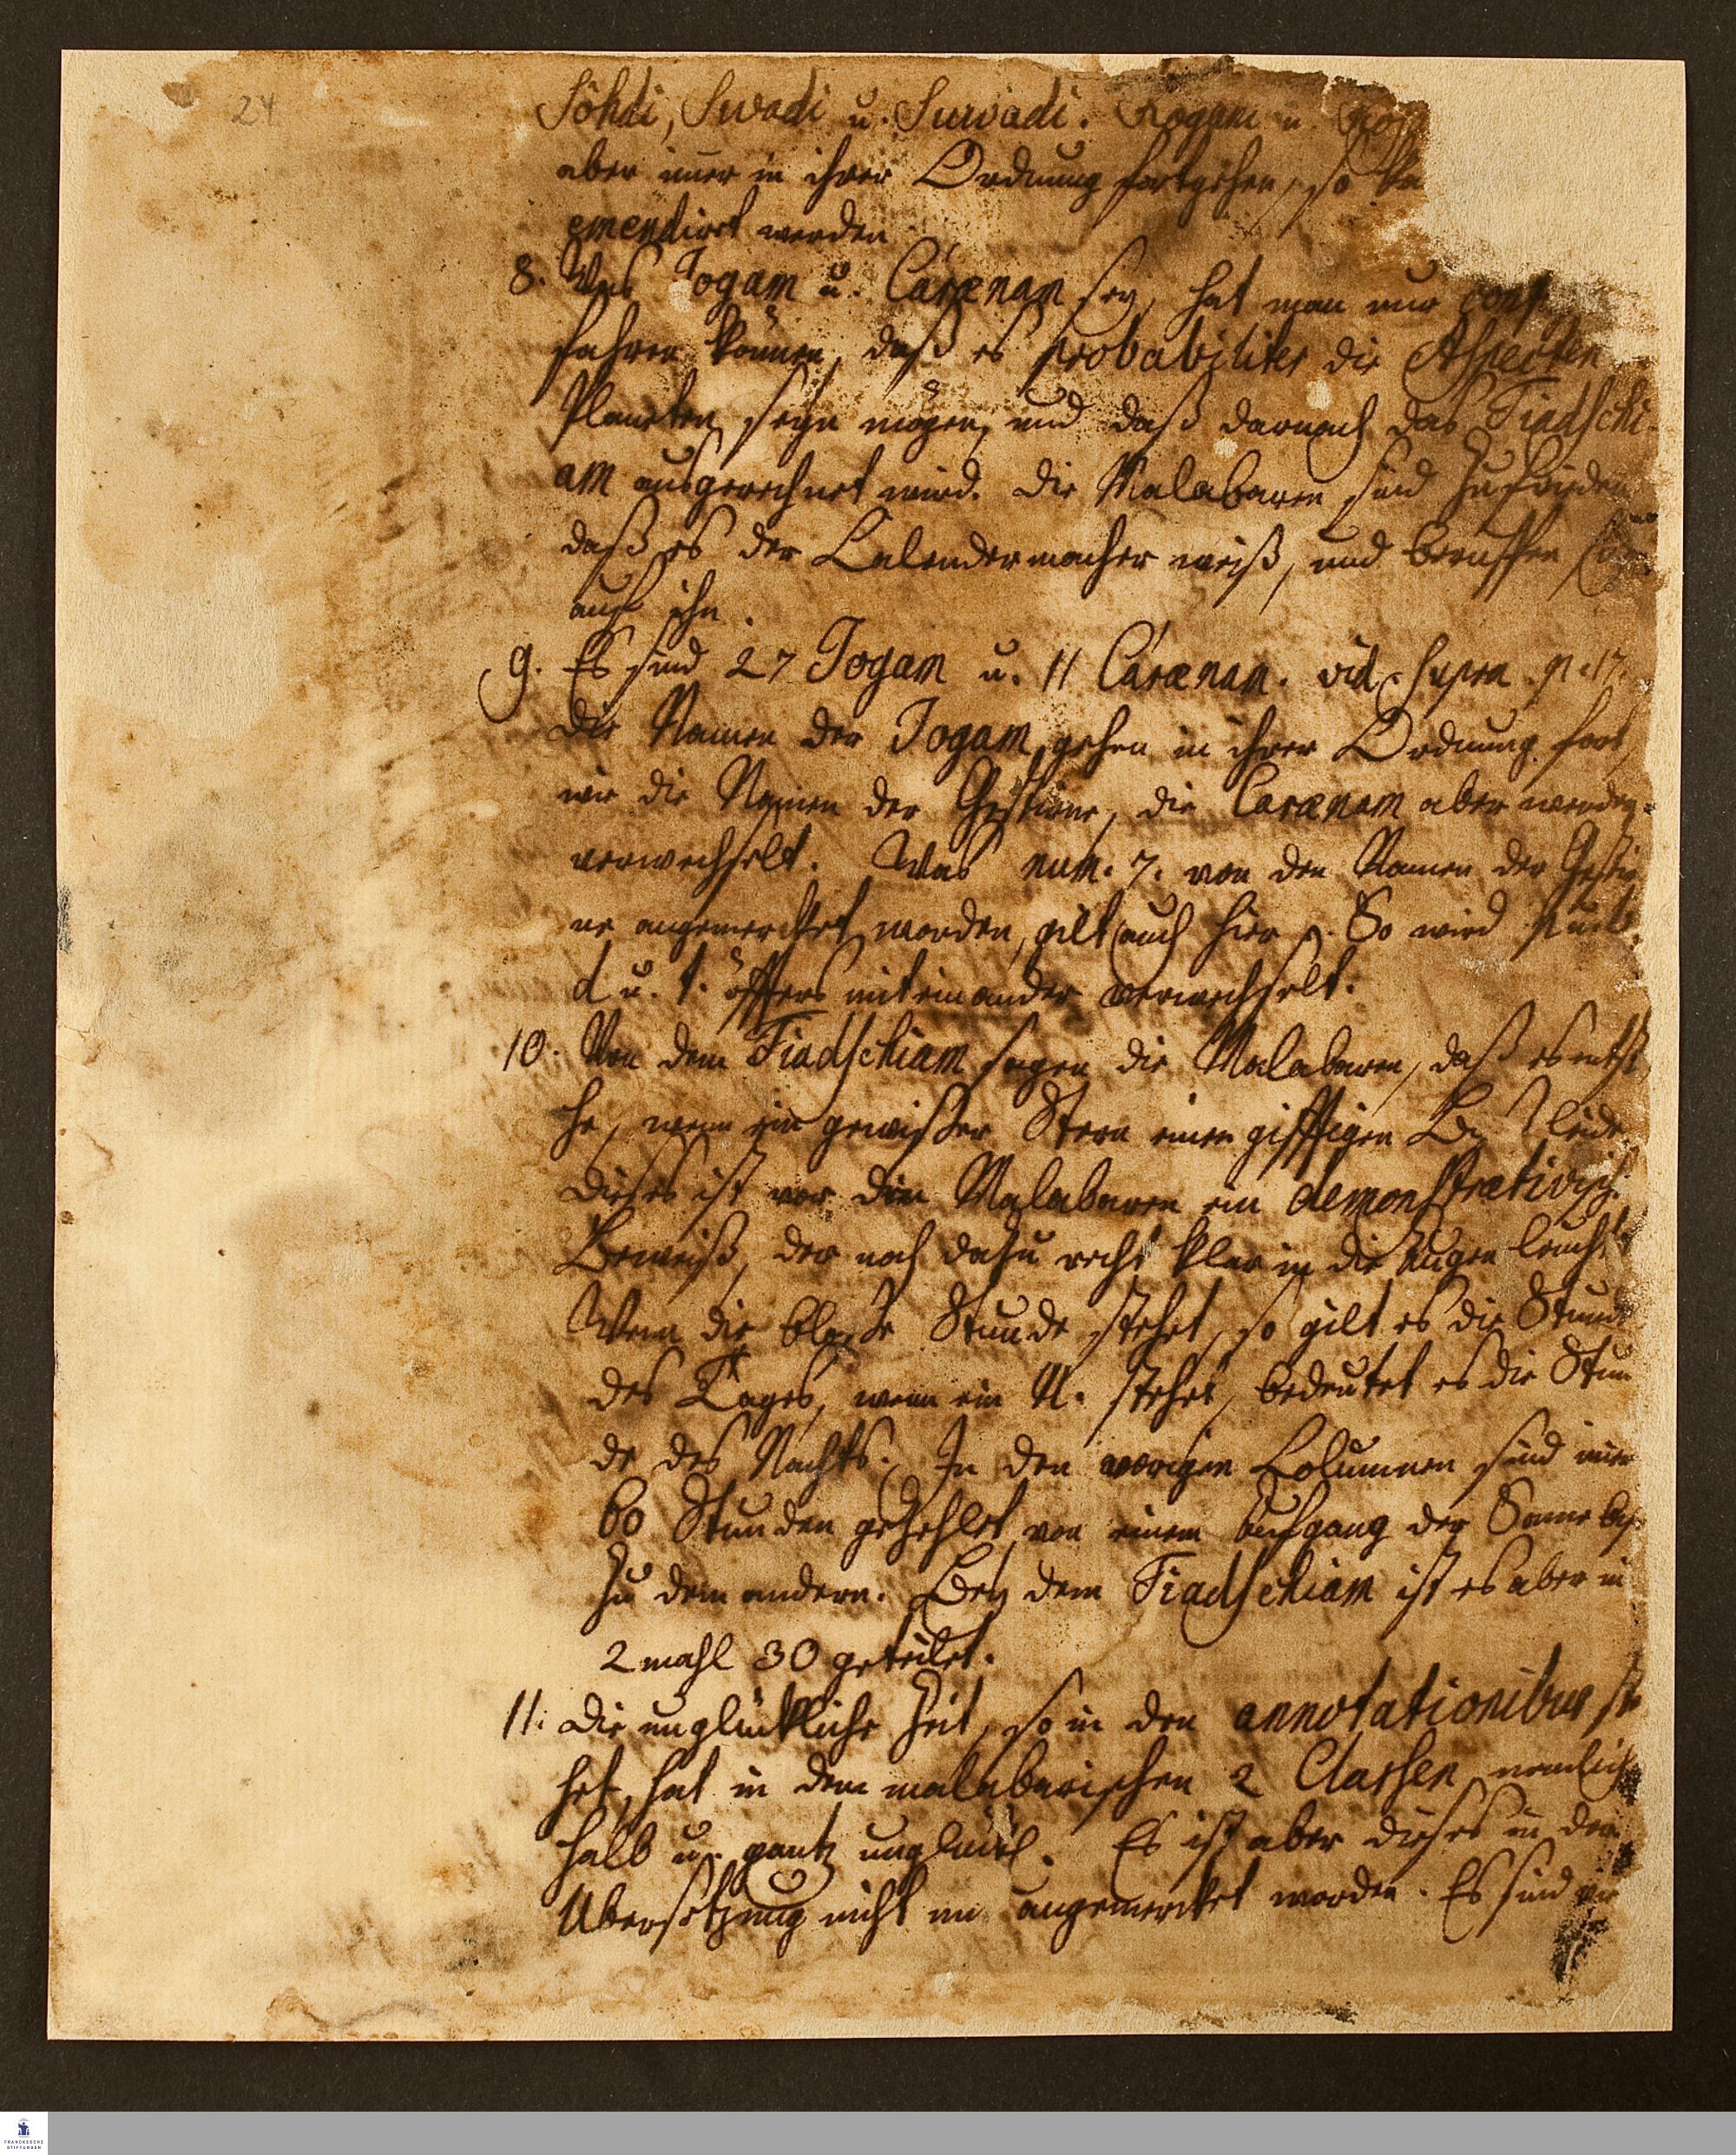 24
Sôhdi, Swadi u. Surwadi. Rogam u.
aber im̄er in ihrer Ordnung fortgehen, so
emendirt werden
8. Was Jogam u. Cárænam sey, hat man nur
fahren können, daß es probabiliter die Aspecten
Planeten seyn mögen, und daß darnach das Tiadschi-
am ausgerechnet wird. Die Malabaren sind zufrieden
daß es der Calendermacher weiß, und beruffen
auf ihn.
9. Es sind 27 Jogam u. 11 Cárænam. vid. supra p. 17.
Die Namen der Jogam gehen in ihrer Ordnung fort,
wie die Namen der Gestirne, die Carænam aber werden
verwechselt. Was num. 7. von den Namen der Gestir
ne angemercket worden, gilt auch hier. So wird
d u. t. öffters mit einander verwechselt.
10. Von dem Tiadschiam sagen die Malabaren, daß es entst
he, wenn ein gewißer Stern einen gifftigen leide.
Dieses ist vor den Malabaren ein demonstrativisch.
Beweiß, der noch dazu recht klar in die Augen leucht
Wenn die bloße Stunde stehet, so gilt es die Stund
des Tages, wenn ein N. stehet, bedeutet es die Stun
de des Nachts. In den vorigen Columnen sind im̄er
60 Stunden gezehlet von einem Aufgang der Sonne biß
zu dem andern. Bey dem Tiadschiam ist es aber in
2 mahl 30 geteilet.
11. Die unglückliche Zeit, so in den annotationibus ste
het, hat in dem malabarischen 2 Classen, nemlich
halb u. gantz unglückl. Es ist aber dieses in der
Übersetzung nicht angemercket worden. Es sind
FRANCKESCHE
STIFTUNGEN